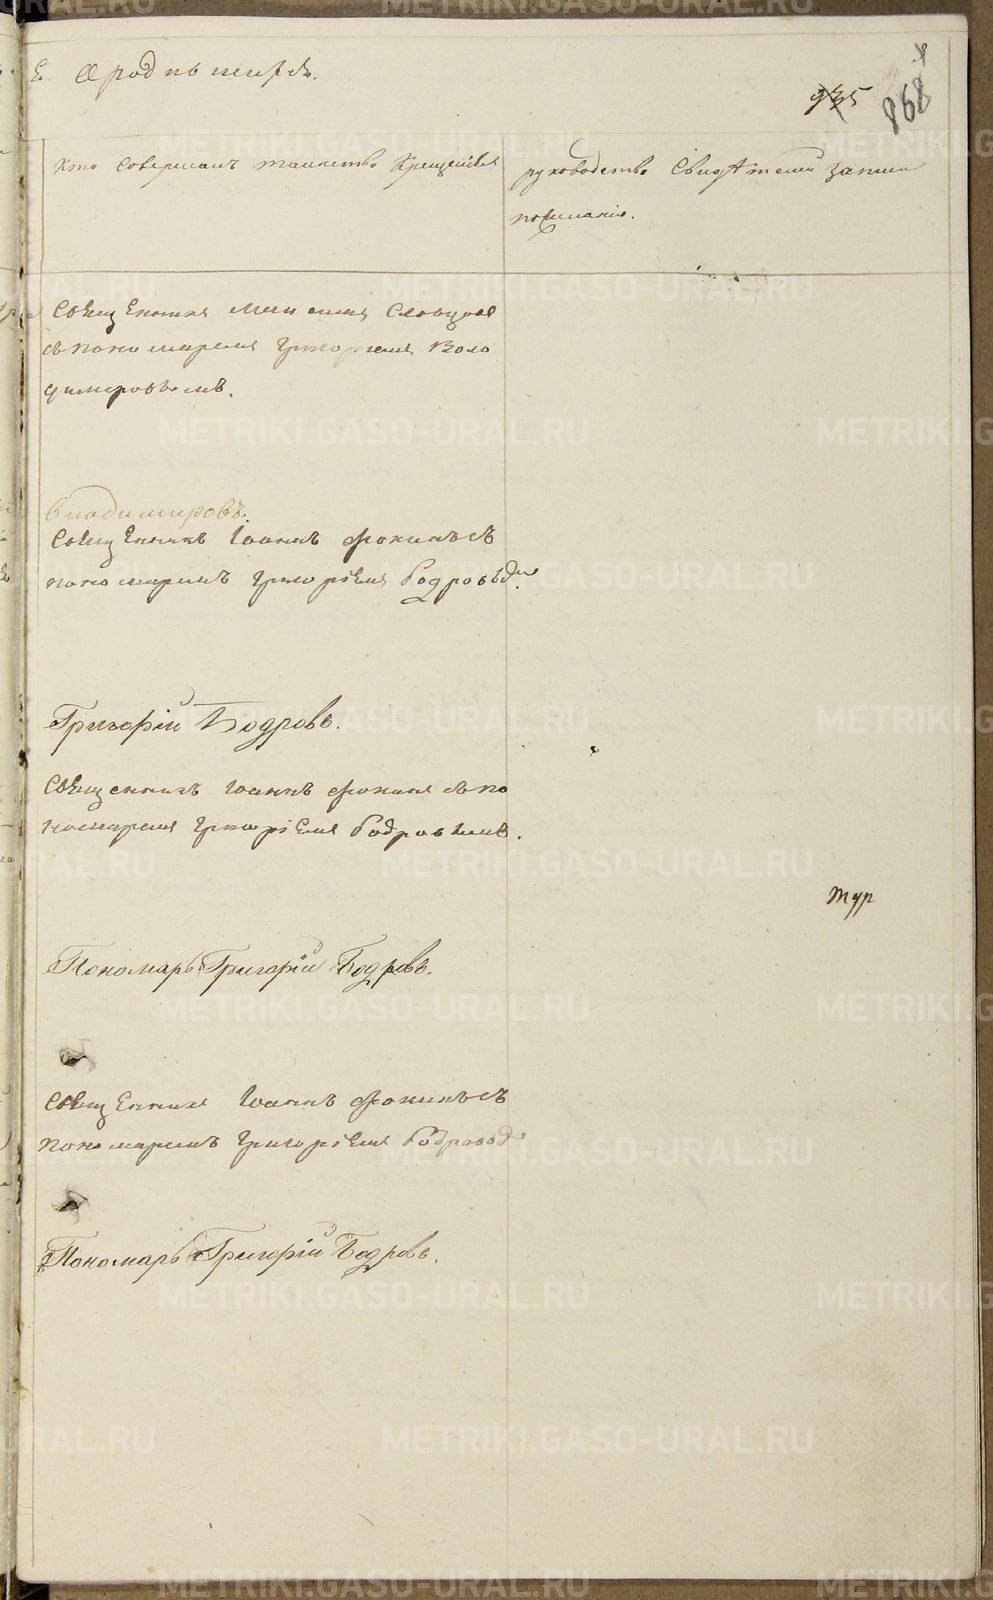 О родившихся.
935
868
Кто совершалъ таинство Крещенія
руководство Свидѣтелей записи
по желанію.
Священникъ Словцовъ
съ пономаремъ Григоріемъ Воло
димеровымъ.
Владимировъ.
Священникъ Іоаннъ Фокинъ съ
пономаремъ Григоріемъ Бодровы
Григорій Бодровъ.
Священникъ Іоаннъ Фокинъ съ по
номаремъ Григоріемъ Бодровымъ.
тур
Пономарь Григорій Бодровъ.
Священникъ Іоаннъ Фокинъ съ
пономаремъ Григоріемъ Бодровы
Пономарь Григорій Бодровъ.
METRIKI.GASO-URAL.RU